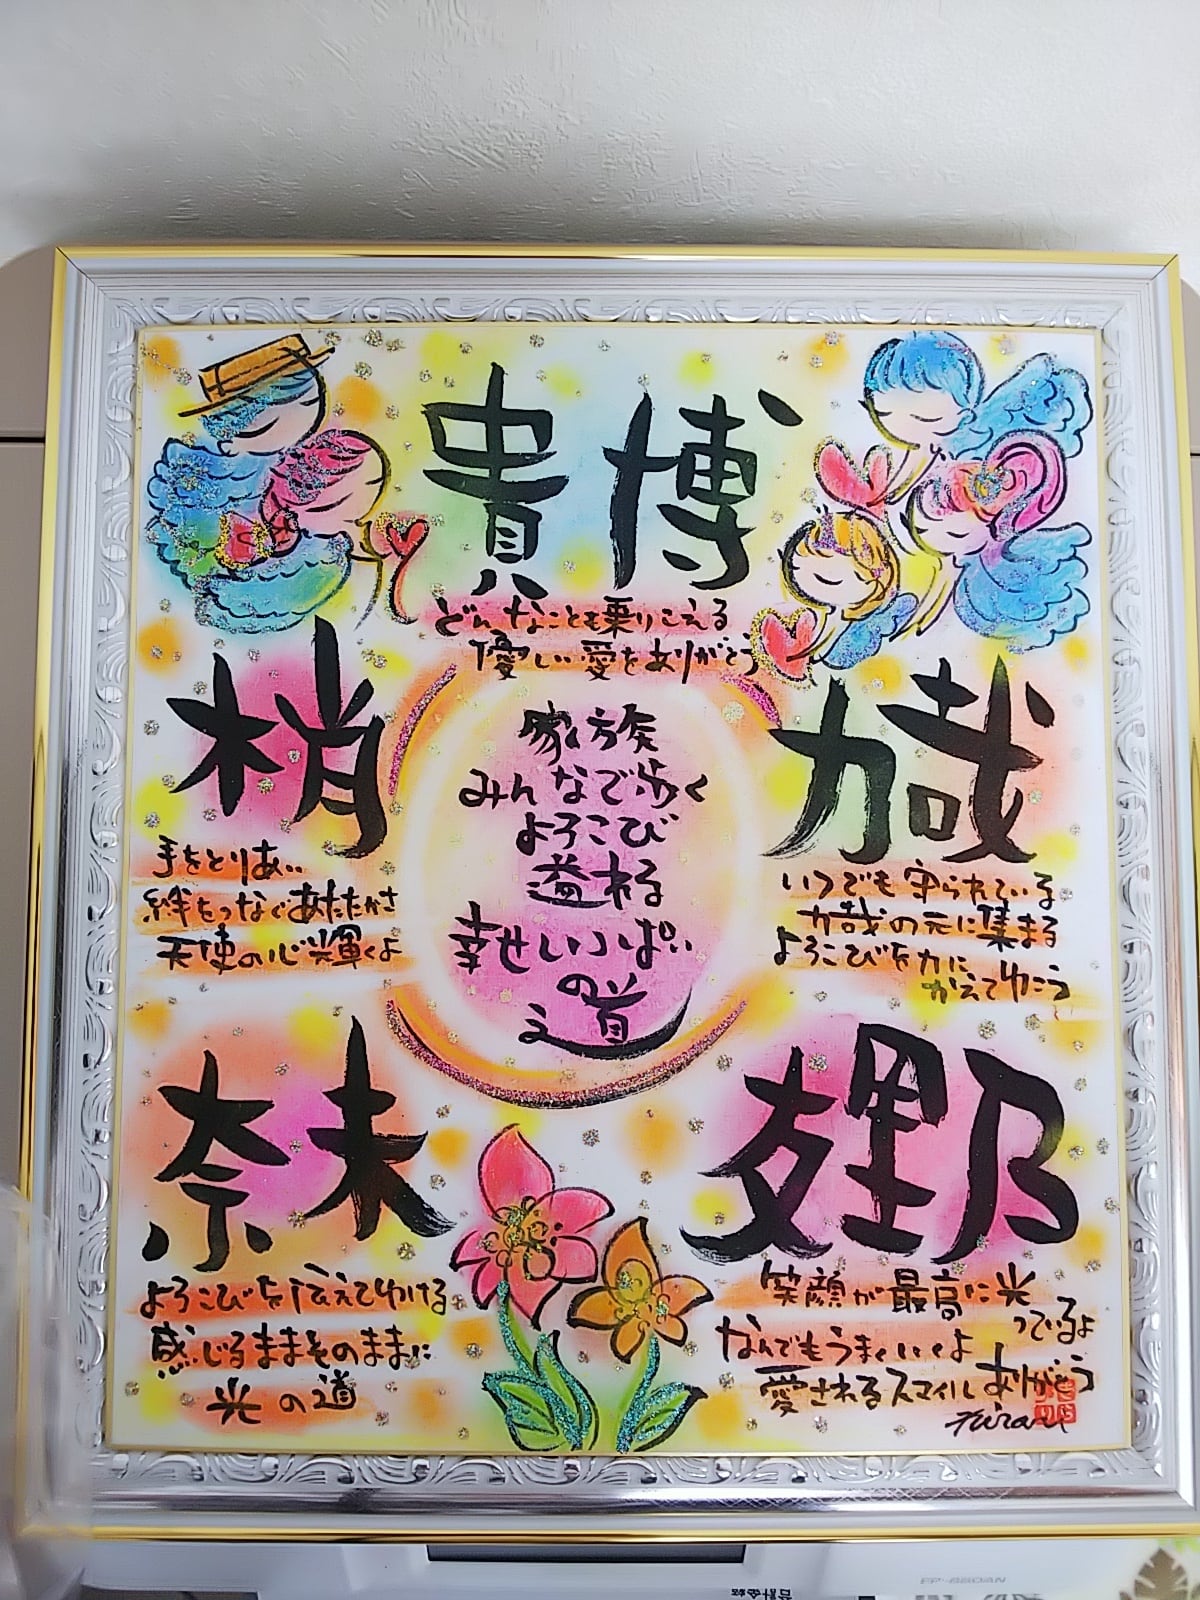 貴博
どんなことも乗りこえる
優しい愛をありがとう
梢
手をとりあい
絆をつなぐあたたかさ
天使の心輝くよ
力哉
いつでも守られている
力哉の元に集まる
よろこびを力に
かえてゆこう
家族
みんなで歩く
よろこび
溢れる
幸せいっぱい
の道
奈未
よろこびを伝えてゆける
感じるままそのままに
光の道
友里乃
笑顔が最高に光
っているよ
なんでもうまくいくよ
愛されるスマイルありがとう
Kirari
EP-880AN